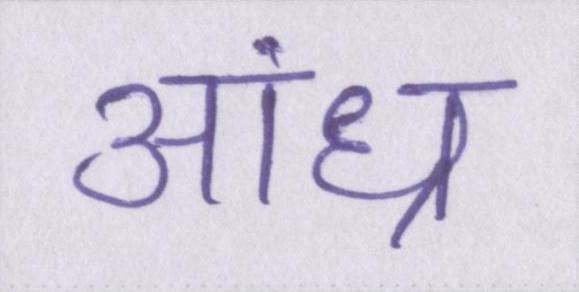 आंध्र